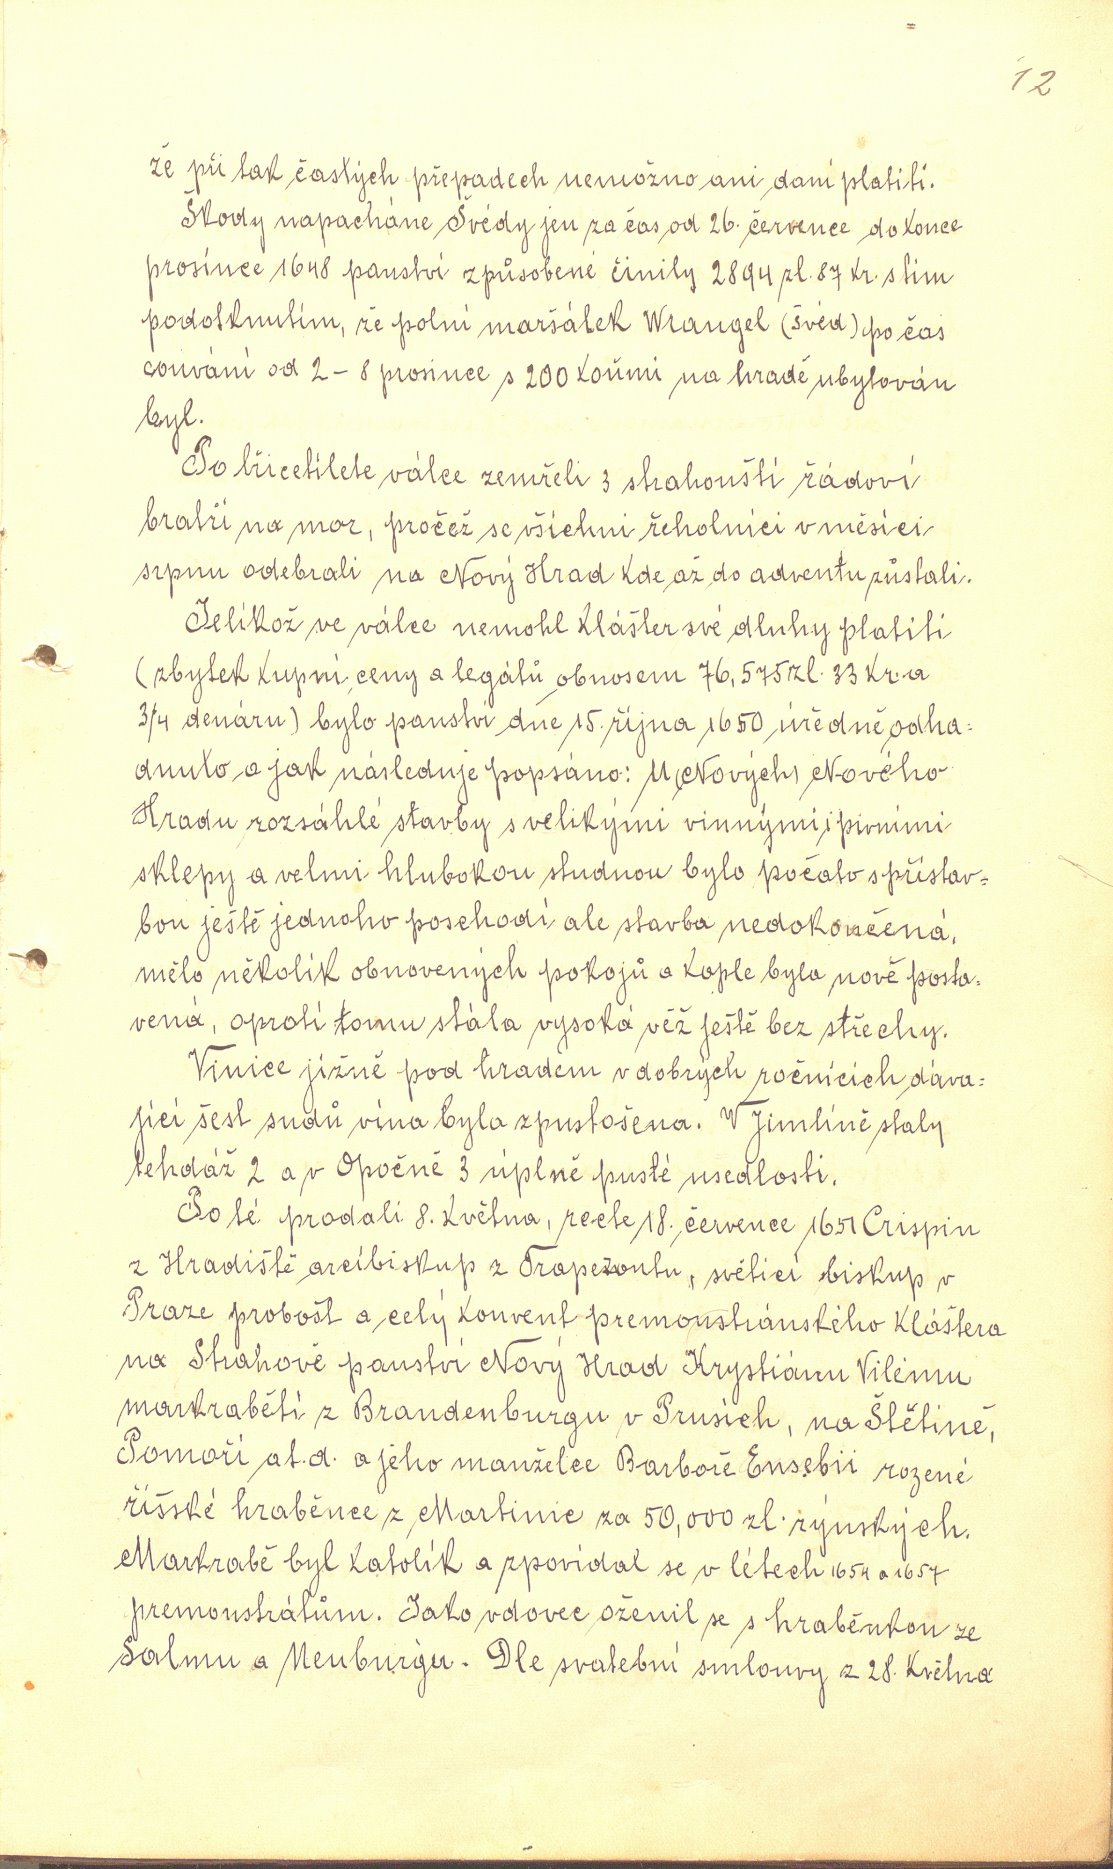 12
že při tak častých přepadech nemožno ani daní platiti.
Škody napacháne Švédy jen za čas od 26. července do konce
prosince 1648 panství způsobené činily 2894 zl. 87 kr. s tím
podotknutím, že polní maršálek Wrangel (švéd) po čas
couvání od 2 – 8 prosince s 200 koňmi na hradě ubytován
byl.
Po třicetilete válce zemřeli 3 strahovští řádoví
bratři na mor, pročež se všichni řeholníci v měsíci
srpnu odebrali na Nový Hrad kde až do adventu zůstali.
Jelikož ve válce nemohl klášter své dluhy platiti
(zbytek kupní ceny a legátů obnosem 76,575 zl. 33 kr. a
3/4 denáru) bylo panství dne 15. října 1650 úředně odha=
dnuto a jak následuje popsáno: U (Nových) Nového
Hradu rozsáhlé stavby s velikými vinnými i pivními
sklepy a velmi hlubokou studnou bylo počato s přístav=
bou ještě jednoho poschodí ale stavba nedokončená,
mělo několik obnovených pokojů a kaple byla nově posta=
vená, oproti tomu stála vysoká věž ještě bez střechy.
Vinice jižně pod hradem v dobrých ročnících dáva=
jící šest sudů vína byla zpustošena. V Jimlíně staly
tehdáž 2 a v Opočně 3 úplně pusté usedlosti.
Po té prodali 8. května, recte 18. července 1651 Crispin
z Hradiště arcibiskup z Trapezontu, světící biskup v
Praze probošt a celý konvent premonstránského kláštera
na Strahově panství Nový Hrad Krystiánu Vilému
markraběti z Brandenburgu v Prusích, na Štětině,
Pomoří a t. d. a jeho manželce Barboře Eusebii rozené
říšské hraběnce z Martinic za 50,000 zl. rýnských.
Markrabě byl katolík a zpovídal se v létech 1654 a 1657
premonstrátům. Jako vdovec oženil se s hraběnkou ze
Salmu a Neuburgu. Dle svatební smlouvy z 28. května